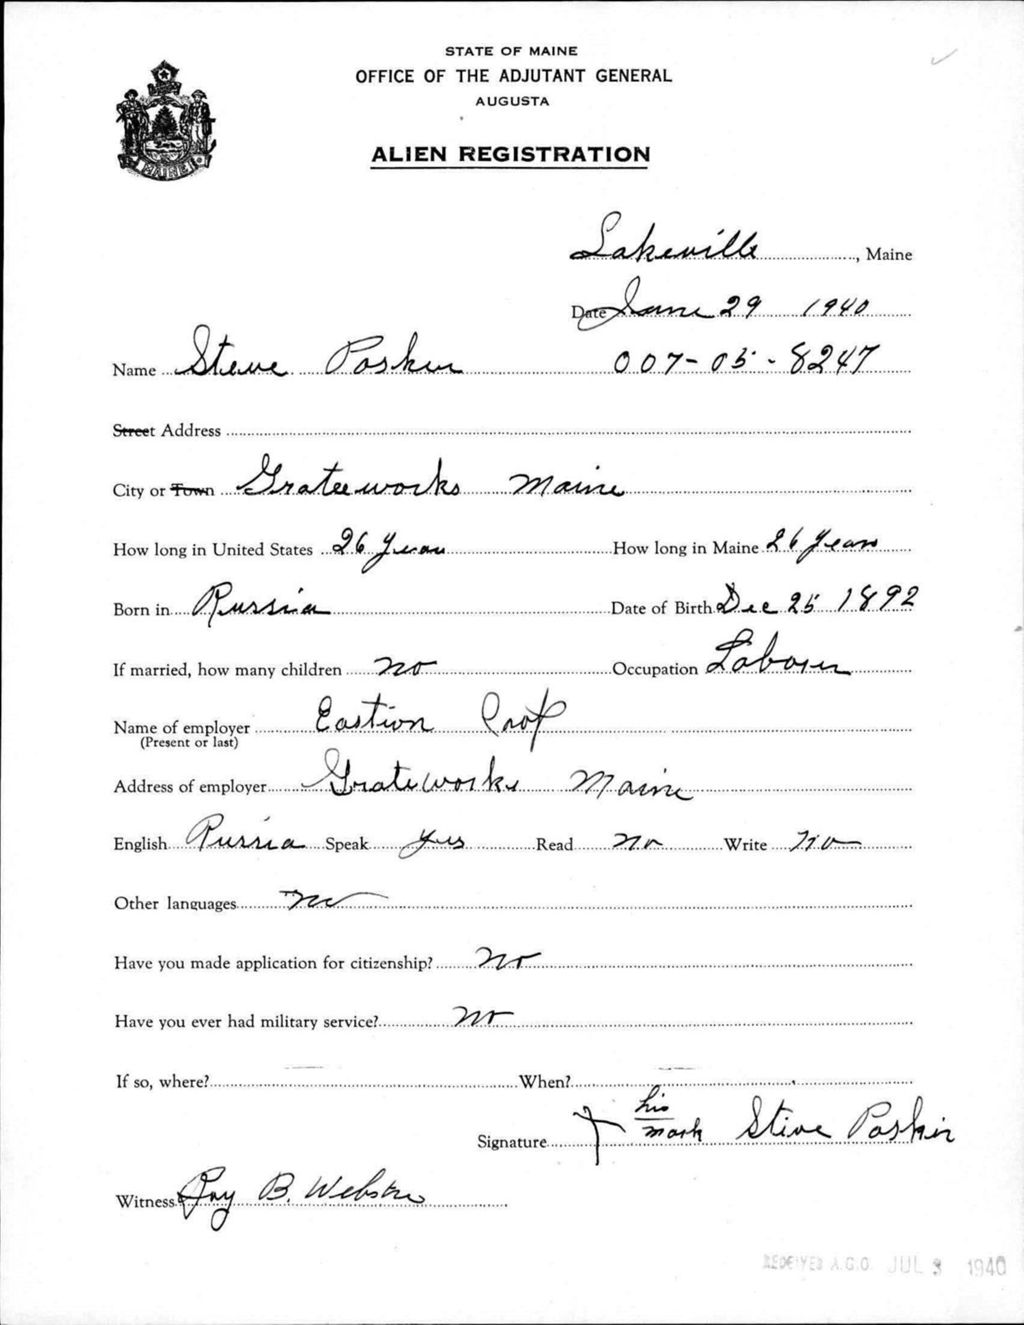 STATE OF MAINE
OFFICE OF THE ADJUTANT GENERAL
AUGUSTA
ALIEN REGISTRATION
MAINE
Lakeville, Maine
Date June 29 1940
Name Steve Poskin 007-05-8247
Street Address
City or Town Grateeworks Maine
How long in United States 26 years How long in Maine 26 years
Born in Russia Date of Birth Dec 25 1892
If married, how many children no Occupation Laborer
Name of employer Eastern
(Present or last)
Address of employer Grateworks Maine
English Russia Speak yes Read no Write no
Other languages no
Have you made application for citizenship? No
Have you ever had military service? No
If so, where? When?
Signature his mark Steve Poskin
Witness Roy B. Webster
RECEIVED A.G.O. JUL 3 1940